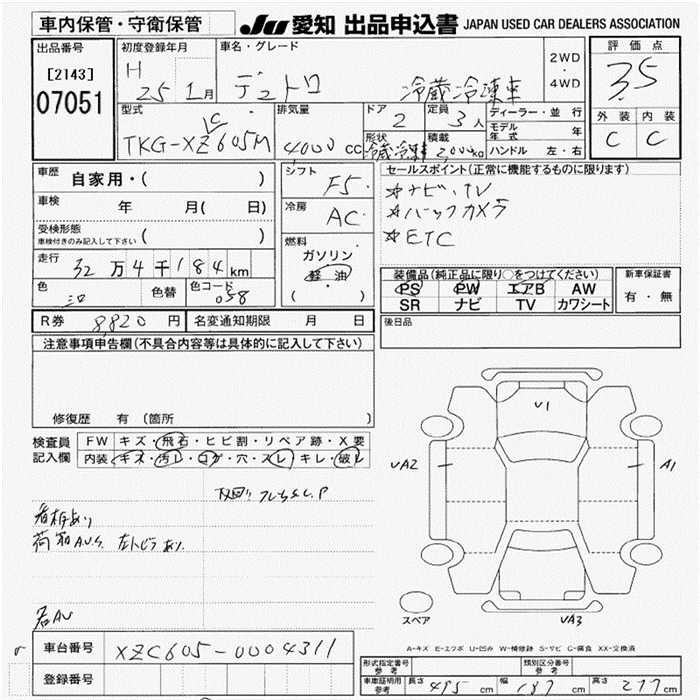 車内保管・守衛保管
JU 愛知 出品申込書 JAPAN USED CAR DEALERS ASSOCIATION
出品番号 [2143] 07051
初度登録年月 H 25 1月
車名・グレード デュトロ 冷蔵冷凍車
2WD・4WD
評価点 3.5
外装 内装
C C
型式 TKG-XZC605M
排気量 4000 cc
ドア 2
定員 3人
形状 冷蔵冷凍車
積載 2,000kg
ディーラー・並行
モデル年式 年
ハンドル 左・右
車歴 自家用・( )
車検 年 月( 日)
受検形態 車検付きのみ記入して下さい ( )
走行 32万4千184km
色 シロ 色替 色コード 058
シフト F5
冷房 AC
燃料 ガソリン 軽油 ( )
セールスポイント(正常に機能するものに限ります)
☆ナビ・TV
☆バックカメラ
☆ETC
装備品(純正品に限り○をつけてください)
PS PW エアB AW
SR ナビ TV カワシート
新車保証書
有・無
後日品
R券 8,820円 名変通知期限 月 日
注意事項申告欄(不具合内容等は具体的に記入して下さい)
修復歴 有(箇所 )
検査員記入欄
FW キズ・飛石・ヒビ割・リペア跡・X要
内装 キズ・汚レ・コゲ・穴・スレ・キレ・破レ
看板あり
荷箱AU.S
名AU
U1
UA2
A1
UA3
スペア
A-キズ E-エクボ U-凹み W-補修跡 S-サビ C-腐食 XX-交換済
車台番号 XZC605-0004311
登録番号
形式指定番号 参考
類別区分番号 参考
車庫証明用 参考 長さ 495cm 幅 187cm 高さ 277cm